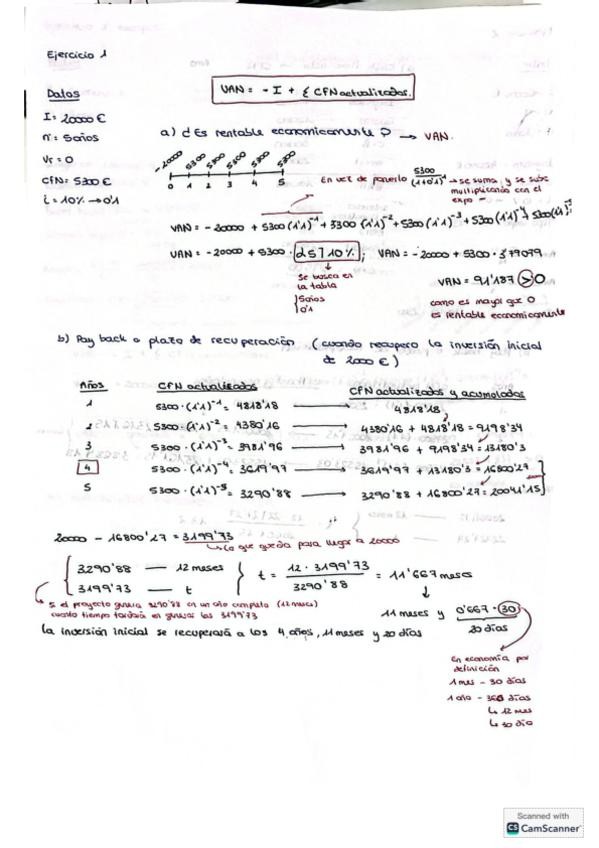 Ejercicio 1
Datos
VAN = - I + Σ CFN actualizados.
I = 20000 €
n = 5 años
Vr = 0
CFN = 5300 €
i = 10% → 0'1
a) ¿Es rentable economicamente? → VAN.
-20000 5300 5300 5300 5300 5300
0 1 2 3 4 5
En vez de ponerlo 5300/(1+0'1)¹ → se suma y se sube multiplicando con el expo -
VAN = - 20000 + 5300 (1'1)⁻¹ + 5300 (1'1)⁻² + 5300 (1'1)⁻³ + 5300 (1'1)⁻⁴ + 5300 (1'1)⁻⁵
VAN = - 20000 + 5300 · a5⌉10% ; VAN = - 20000 + 5300 · 3'79079
Se busca en
la tabla
5 años
0'1
VAN = 91'187 > 0
como es mayor que 0
es rentable economicamente
b) Pay back o plazo de recuperación (cuando recupero la inversión inicial
de 2000 €)
Años CFN actualizados CFN actualizados y acumolados
1 5300 · (1'1)⁻¹ = 4818'18 → 4818'18
2 5300 · (1'1)⁻² = 4380'16 → 4380'16 + 4818'18 = 9198'34
3 5300 · (1'1)⁻³ = 3981'96 → 3981'96 + 9198'34 = 13180'3
4 5300 · (1'1)⁻⁴ = 3619'97 → 3619'97 + 13180'3 = 16800'27
5 5300 · (1'1)⁻⁵ = 3290'88 → 3290'88 + 16800'27 = 20041'15
20000 - 16800'27 = 3199'73
→ Lo que queda para llegar a 20000
3290'88 — 12 meses
3199'73 — t
t = 12 · 3199'73 / 3290'88 = 11'667 meses
Si el proyecto genera 3290'88 en un año completo (12 meses)
cuanto tiempo tardará en generar los 3199'73
11 meses y 0'667 · 30
20 días
la inversión inicial se recuperará a los 4 años, 11 meses y 20 días
En economía por
definición
1 mes - 30 días
1 año - 360 días
↳ 12 mes
↳ 30 día
Scanned with
CS CamScanner